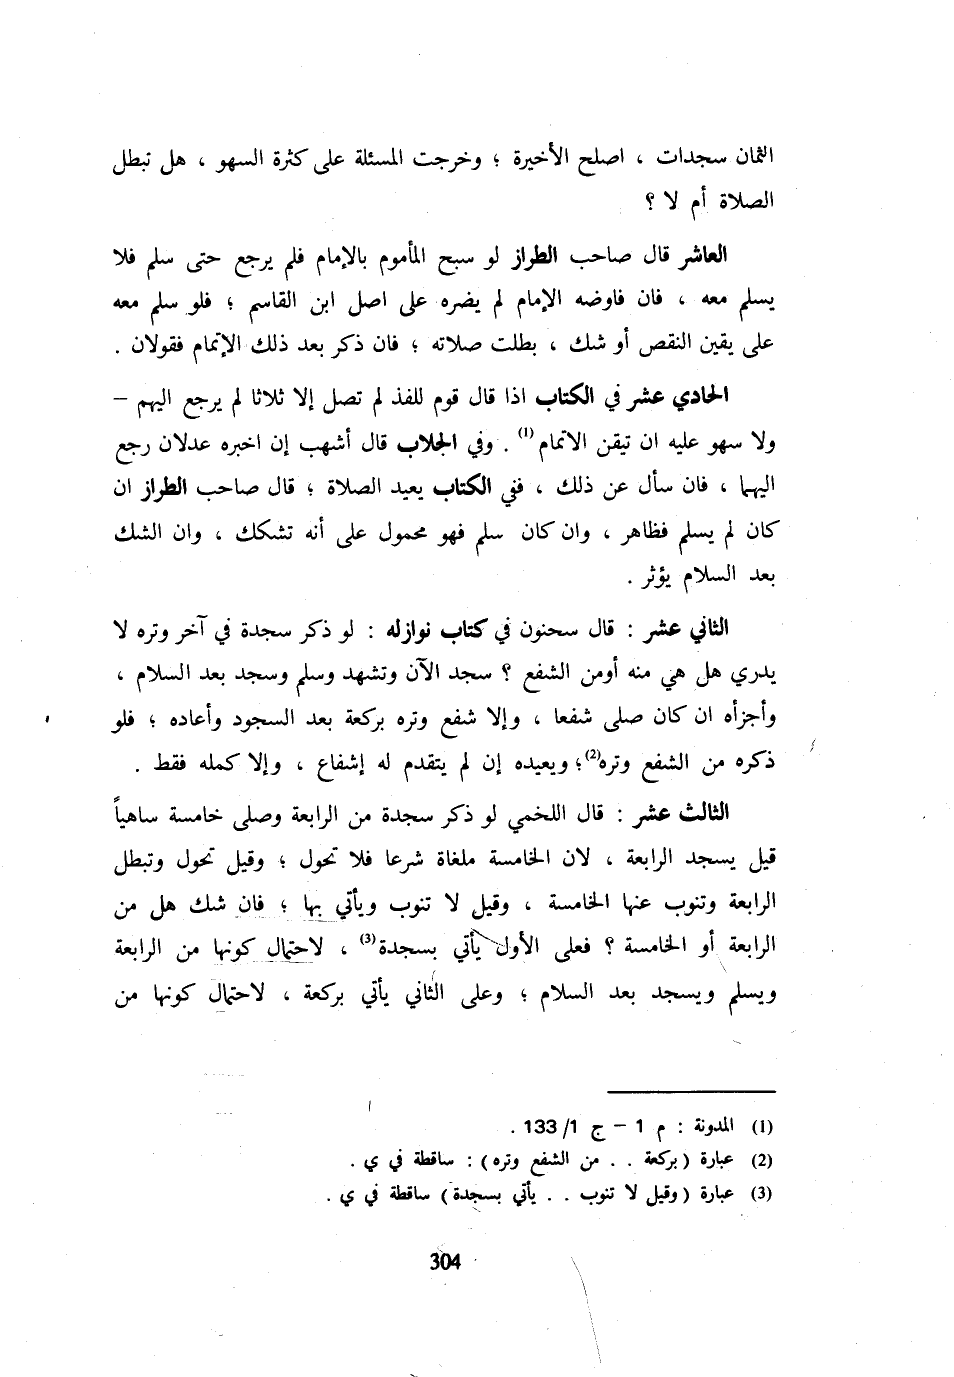 الثمان سجدات ، اصلح الأخيرة ؛ وخرجت المسئلة على كثرة السهو ، هل تبطل
الصلاة أم لا ؟
العاشر قال صاحب الطراز لو سبح المأموم بالإمام فلم يرجع حتى سلم فلا
يسلم معه ، فان فاوضه الإمام لم يضره على اصل ابن القاسم ؛ فلو سلم معه
على يقين النقص أو شك ، بطلت صلاته ؛ فان ذكر بعد ذلك الإتمام فقولان .
الحادي عشر في الكتاب اذا قال قوم للفذ لم تصل إلا ثلاثا لم يرجع اليهم –
ولا سهو عليه ان تيقن الاتمام (1) . وفي الجلاب قال أشهب إن اخبره عدلان رجع
اليهما ، فان سأل عن ذلك ، ففي الكتاب يعيد الصلاة ؛ قال صاحب الطراز ان
كان لم يسلم فظاهر ، وان كان سلم فهو محمول على أنه تشكك ، وان الشك
بعد السلام يؤثر .
الثاني عشر : قال سحنون في كتاب نوازله : لو ذكر سجدة في آخر وتره لا
يدري هل هي منه أومن الشفع ؟ سجد الآن وتشهد وسلم وسجد بعد السلام ،
وأجزأه ان كان صلى شفعا ، وإلا شفع وتره بركعة بعد السجود وأعاده ؛ فلو
ذكره من الشفع وتره(2)؛ ويعيده إن لم يتقدم له إشفاع ، وإلا كمله فقط .
الثالث عشر : قال اللخمي لو ذكر سجدة من الرابعة وصلى خامسة ساهياً
قيل يسجد الرابعة ، لان الخامسة ملغاة شرعا فلا تحول ؛ وقيل تحول وتبطل
الرابعة وتنوب عنها الخامسة ، وقيل لا تنوب ويأتي بها ؛ فان شك هل من
الرابعة أو الخامسة ؟ فعلى الأول يأتي بسجدة(3) ، لاحتمال كونها من الرابعة
ويسلم ويسجد بعد السلام ؛ وعلى الثاني يأتي بركعة ، لاحتمال كونها من
(1) المدونة : م 1 – ج 1/ 133 .
(2) عبارة ( بركعة . . من الشفع وتره ) : ساقطة في ي .
(3) عبارة ( وقيل لا تنوب . . يأتي بسجدة ) ساقطة في ي .
304